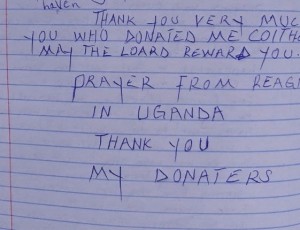 haven
THANK YOU VERY MUC
YOU WHO DONATED ME COITHE
MAY THE LOARD REWARD YOU.
PRAYER FROM REAG
IN UGANDA
THANK YOU
MY DONATERS